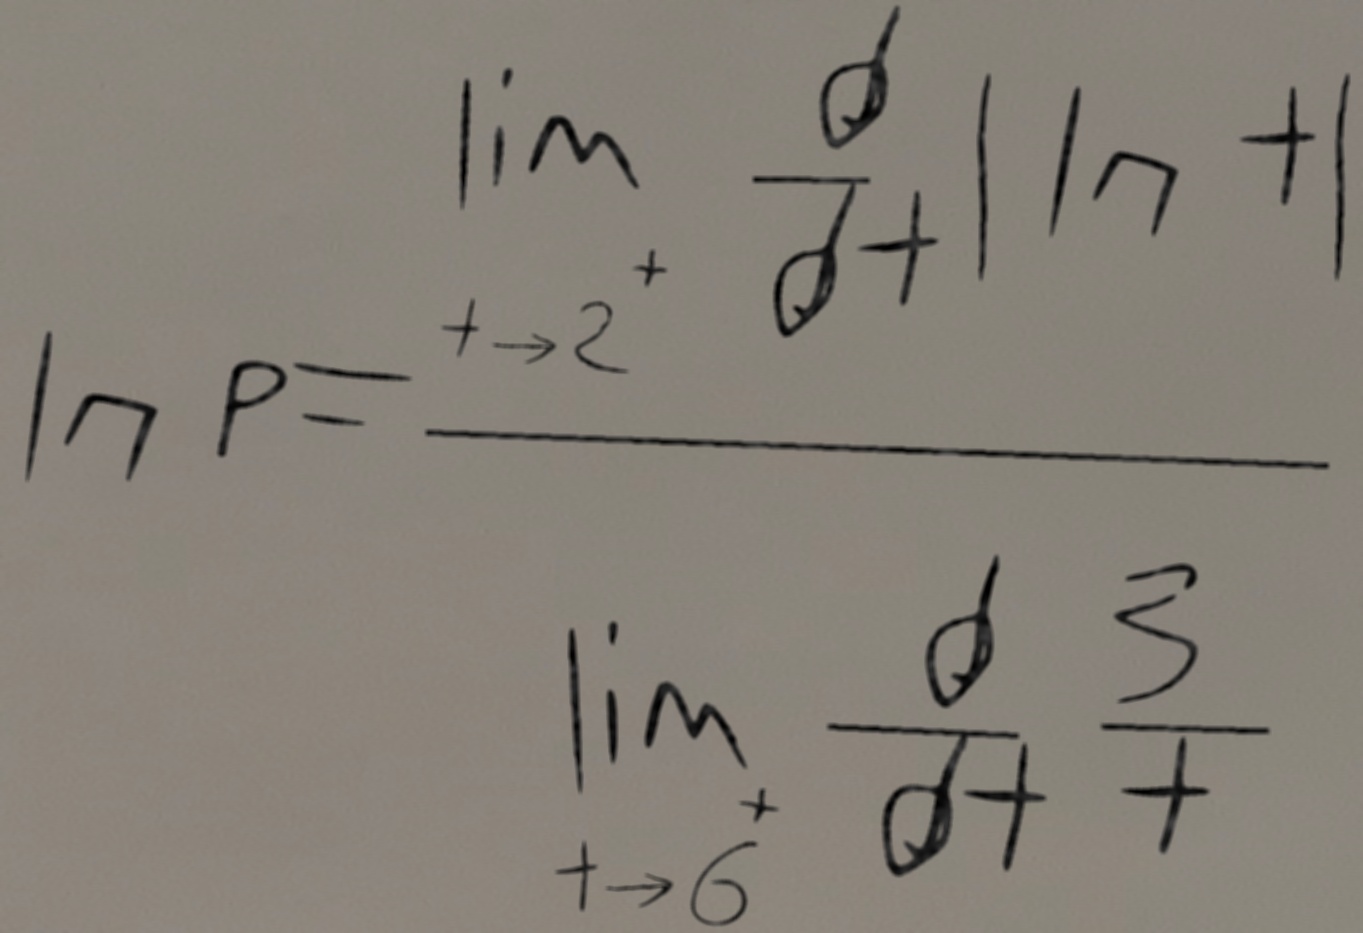 ln P = \frac{\lim_{t \to 2^+} \frac{d}{dt} |ln t|}{\lim_{t \to 6^+} \frac{d}{dt} \frac{3}{t}}